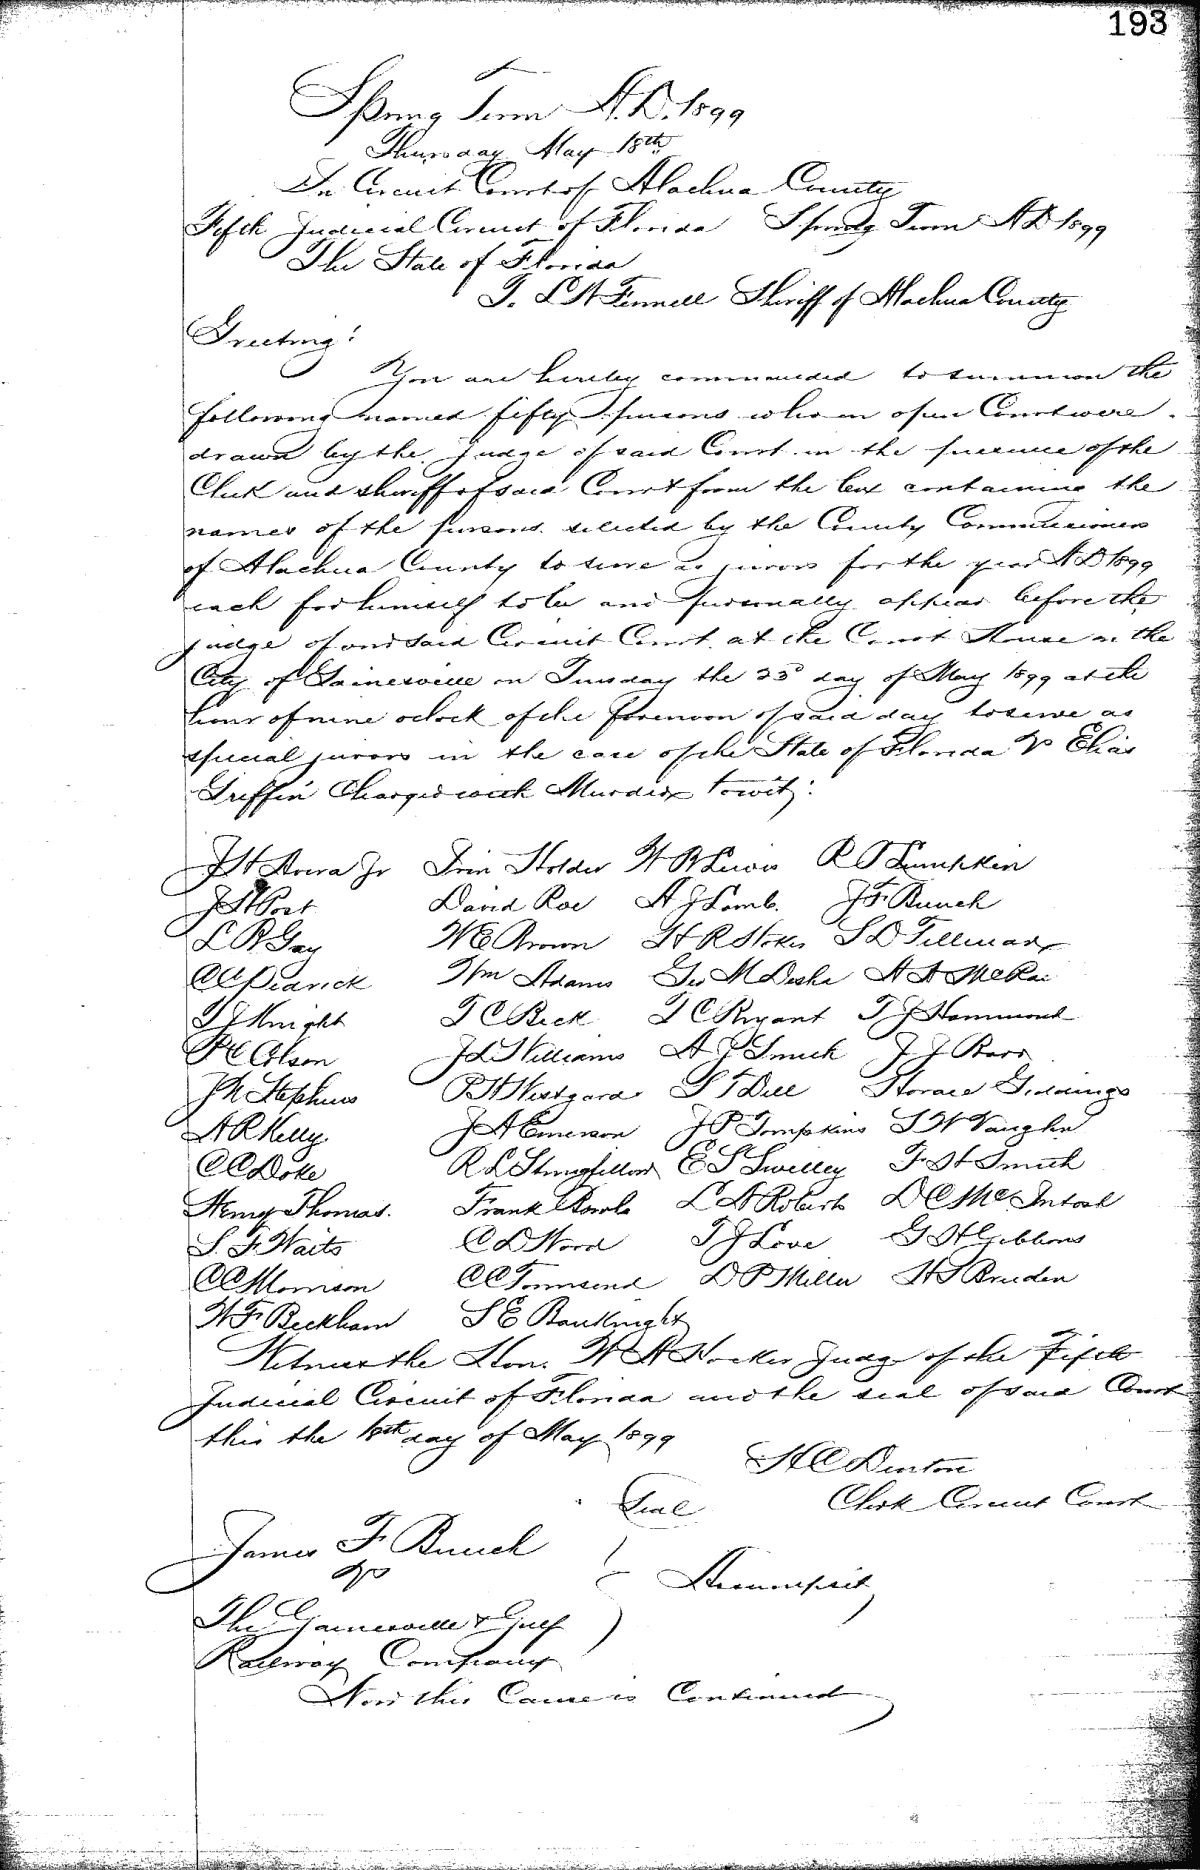 193
Spring Term A.D. 1899
Thursday May 18th
In Circuit Court of Alachua County
Fifth Judicial Circuit of Florida Spring Term A D 1899
The State of Florida
To L W Fennell Sheriff of Alachua County
Greeting:
You are hereby commanded to summon the
following named fifty persons who in open Court were
drawn by the Judge of said Court in the presence of the
Clerk and sheriff of said Court from the box containing the
names of the persons selected by the County Commissioners
of Alachua County to serve as jurors for the year A D 1899
each for himself to be and personally appear before the
judge of our said Circuit Court at the Court House in the
City of Gainesville on Tuesday the 23d day of May 1899 at the
hour of nine oclock of the forenoon of said day to serve as
special jurors in the case of the State of Florida vs Elias
Griffin Charged with Murder towit:
J H Avera Jr Irvin Holder W B Lewis R T Lumpkin
J H Post David Roe A J Lamb. J F Bunch
L B Gay W E Brown H R Stokes S D Tillman
C C Pedrick Wm Adams Geo M Desha A A McRae
T J Knight T C Beck T C Bryant T J Hammond
Colson J L Williams A J Smith J J Barr
J R Stephens P H Westgard S T Dell Horace Giddings
A R Kelly J A Emerson J P Tompkins S W Vaughn
C C Doke R L Stringfellow E S Swilley F H Smith
Henry Thomas. Frank Rawls L A Roberts D C McIntosh
S. F. Waits C D Wood T J Love G H Gibbons
C C Morrison C C Townsend D P Miller H S Bruden
W F Beckham S E Bauknight
Witness the Hon. W A Hocker Judge of the Fifth
Judicial Circuit of Florida and the seal of said Court
this the 18th day of May 1899
H C Denton
Seal Clerk Circuit Court
James F Bunch
vs Assumpsit
The Gainesville & Gulf
Railway Company
Now this Cause is Continued